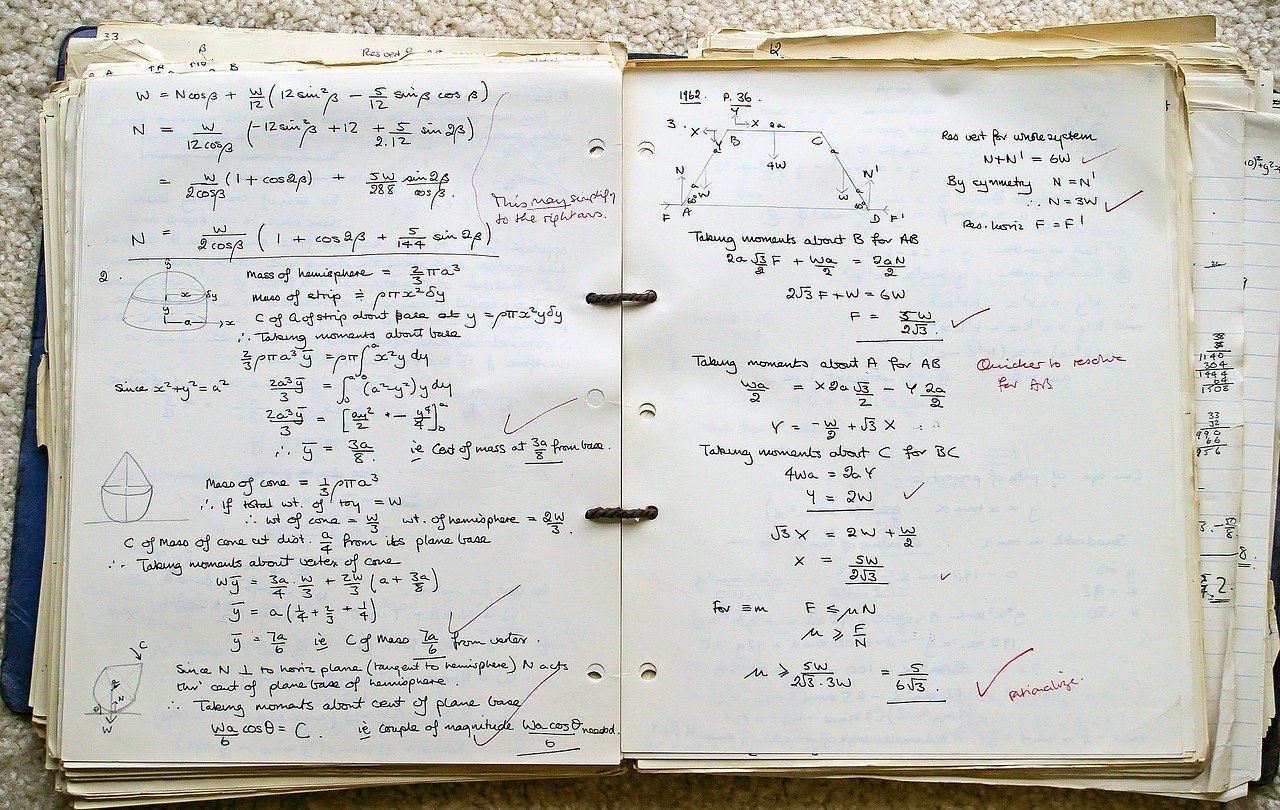 33.
β
Res vert
A B
W = Ncosβ + W/12 (12sin²β − 5/12 sinβ cosβ)
N = W/12cosβ (−12sin²β + 12 + 5/2.12 sin2β)
= W/2cosβ (1 + cos2β) + 5W/288 sin2β/cosβ.
This may simplify
to the right ans.
N = W/2cosβ (1 + cos2β + 5/144 sin2β)
2.
y x δy y a x
Mass of hemisphere = 2/3 πa³
Mass of strip ≑ ρπx²δy
C of G of strip about base at y = ρπx²yδy
∴ Taking moments about base
2/3 ρπa³ȳ = ρπ∫₀ᵃ x²y dy
Since x²+y²=a² 2a³ȳ/3 = ∫₀ᵃ (a²−y²)y dy
2a³ȳ/3 = [ay²/2 − y⁴/4]₀ᵃ
∴ ȳ = 3a/8 ie Cent of mass at 3a/8 from base.
Mass of cone = 1/3 ρπa³
∴ If total wt. of toy = W
∴ wt of cone = W/3 wt. of hemisphere = 2W/3.
C of Mass of cone at dist. a/4 from its plane base
∴ Taking moments about vertex of cone
Wȳ = 3a/4 · W/3 + 2W/3 (a + 3a/8)
ȳ = a(1/4 + 2/3 + 1/4)
ȳ = 7a/6 ie C of Mass 7a/6 from vertex.
C
N
θ
W
Since N ⊥ to horiz plane (tangent to hemisphere) N acts
thro' cent of plane base of hemisphere.
∴ Taking moments about cent of plane base
Wa/6 cosθ = C. ie couple of magnitude Wa cosθ/6 needed.
12.
1962 P. 36.
3. X Y Y X 2a
B C
a a
4W
N N'
a W W a
60° 60°
F A D F'
Res vert for whole system
N+N' = 6W
By symmetry N = N'
∴ N = 3W
Res. horiz F = F'
Taking moments about B for AB
2a √3/2 F + Wa/2 = 2aN/2
2√3 F + W = 6W
F = 5W/2√3.
Taking moments about A for AB
Quicker to resolve
for AB
Wa/2 = X2a √3/2 − Y 2a/2
Y = −W/2 + √3 X
Taking moments about C for BC
4Wa = 2aY
Y = 2W
√3 X = 2W + W/2
X = 5W/2√3
For ≡m F ≤ μN
μ ≥ F/N
μ ≥ 5W/2√3·3W = 5/6√3.
rationalize.
38
38
1140
304
1444
64
1508
33
32
990
66
956